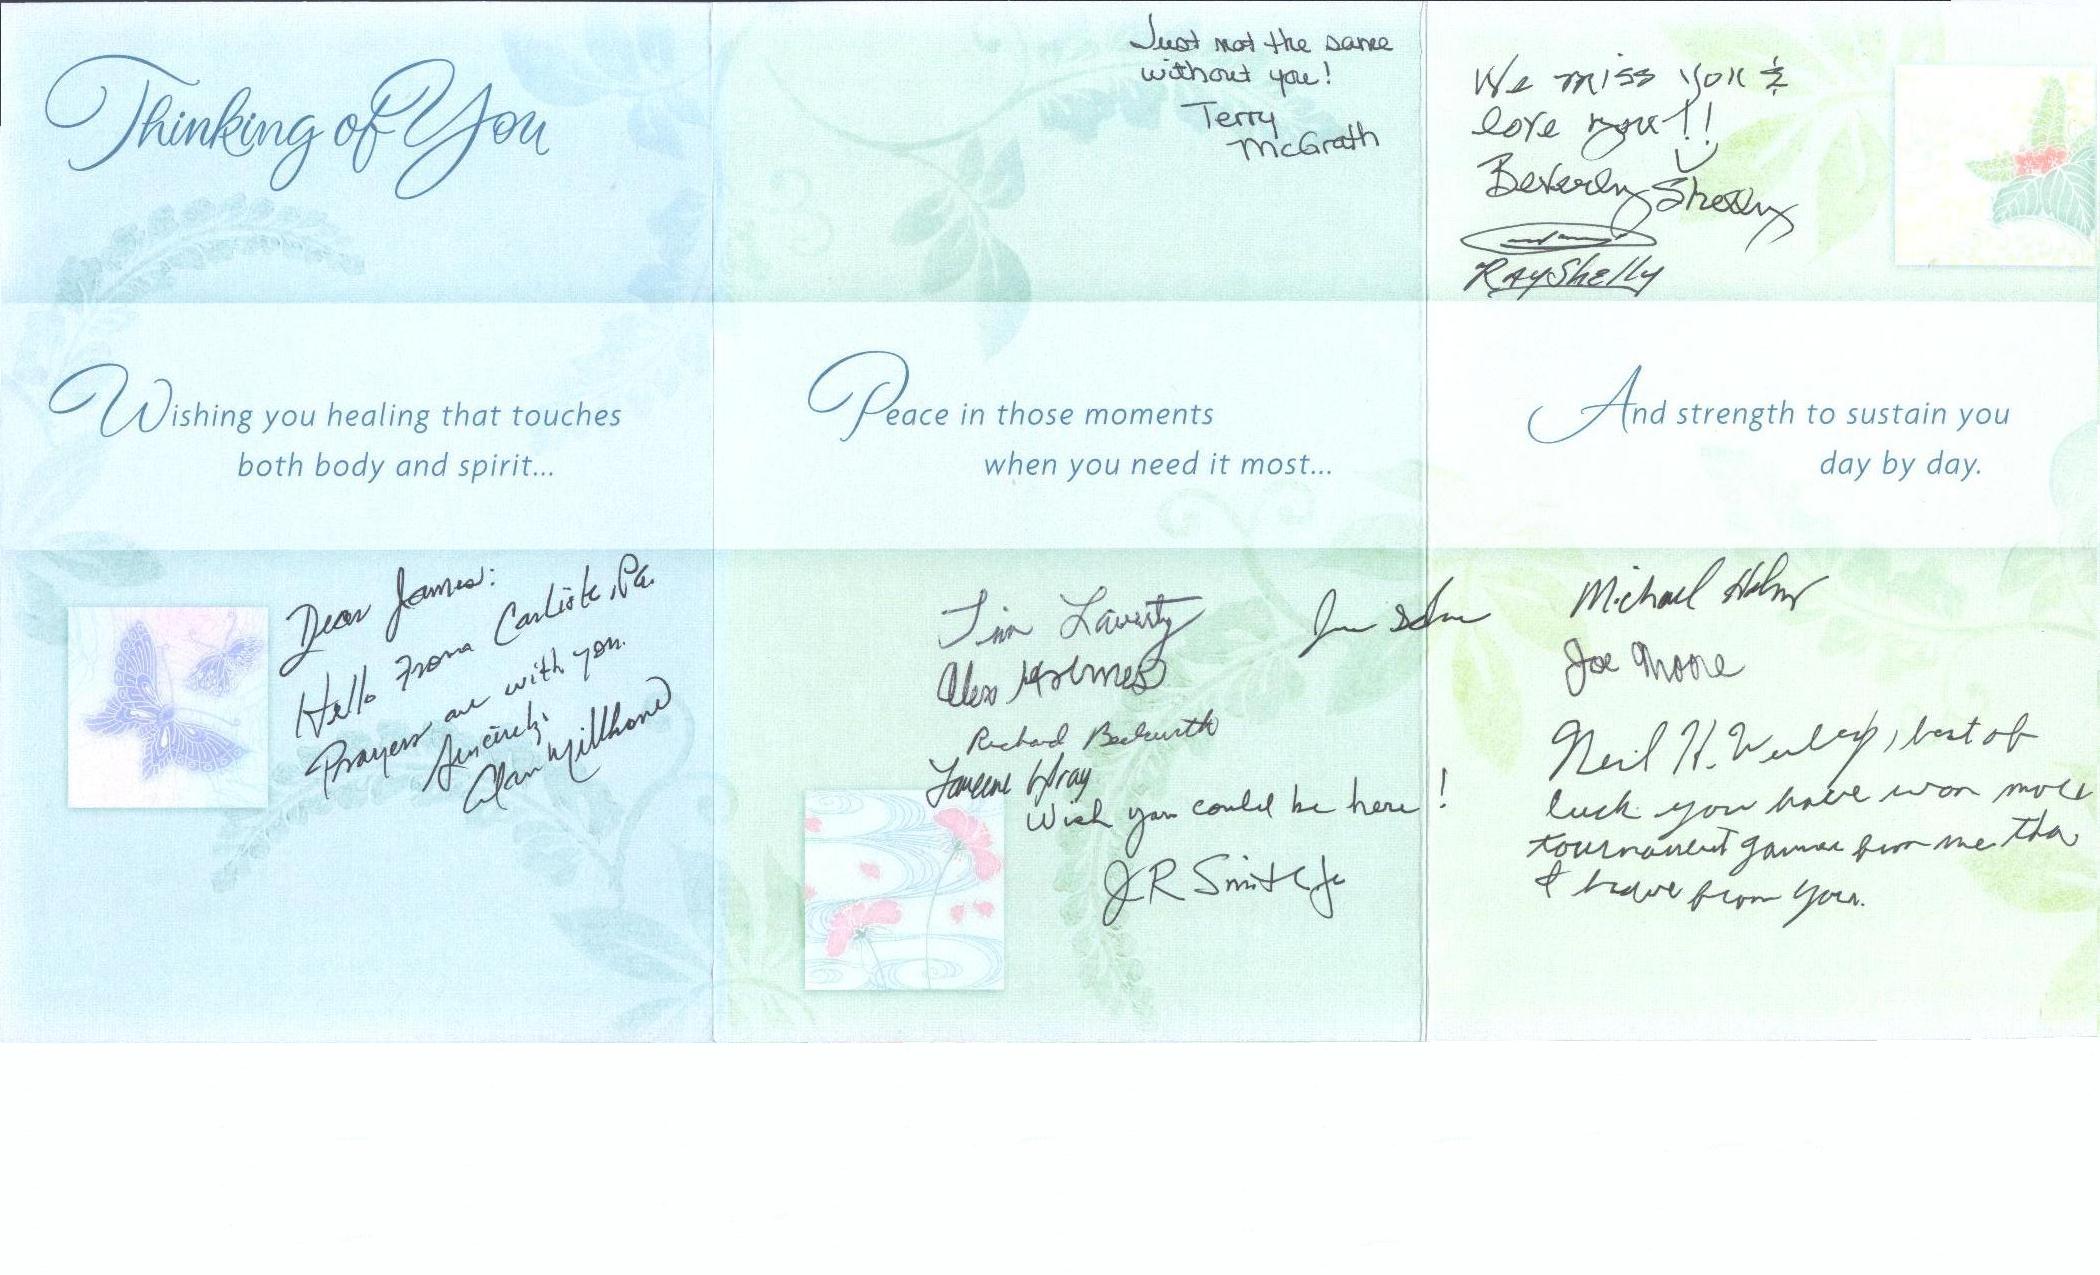 Thinking of You
Wishing you healing that touches
both body and spirit...
Dear James:
Hello From Carlisle, Pa.
Prayers are with you.
Sincerely,
Alan Millhone
Just not the same
without you!
Terry
McGrath
Peace in those moments
when you need it most...
Tim Laverty
Alex Holmes
Richard Beckwith
Wish you could be here!
J R Smith Jr
We miss you &
love you!!
Beverly Shelly
Ray Shelly
And strength to sustain you
day by day.
Michael Holmes
Joe Moore
Neil H. best of
luck you have won more
tournament games from me than
I have from you.